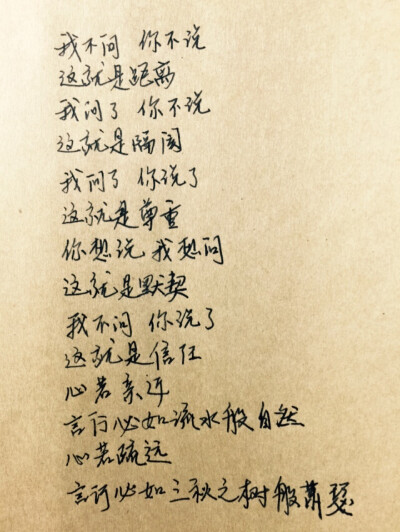 我不问 你不说
这就是距离
我问了 你不说
这就是隔阂
我问了 你说了
这就是尊重
你想说 我想问
这就是默契
我不问 你说了
这就是信任
心若亲近
言行必如流水般自然
心若疏远
言行必如三秋之树般萧瑟